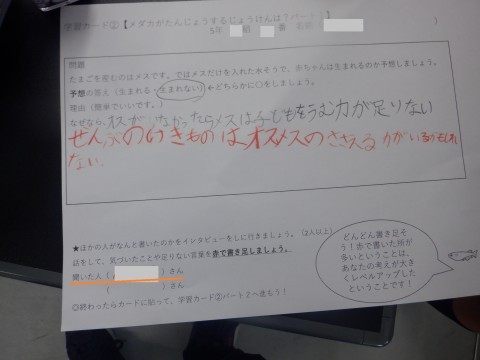 学習カード②【メダカがたんじょうするじょうけんは？パート１】
5年 組 番 名前( )
問題
たまごを産むのはメスです。ではメスだけを入れた水そうで、赤ちゃんは生まれるのか予想しましょう。
予想の答え（生まれる・生まれない）←どちらかに○をしましょう。
理由（簡単でいいです。）
なぜなら、オスがいなかったらメスは子どもをうむ力が足りない
せんぶのいきものは、オスメスのささえる力がいるかもしれ
ない。
★ほかの人がなんと書いたのかをインタビューをしに行きましょう。（2人以上）
話をして、気づいたことや足りない言葉を赤で書き足しましょう。
聞いた人（ ）さん
（ ）さん
◎終わったらカードに貼って、学習カード②パート２へ進もう！
どんどん書き足そ
う！赤で書いた所が
多いということは、
あなたの考えが大き
くレベルアップした
ということです！